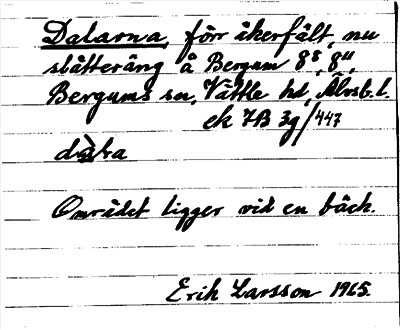 Dalarna, förr åkerfält, nu
slåtteräng å Bergum 8⁸, 8¹¹,
Bergums sn, Vättle hd, Älvsb. l.
ek 7B 3g/447
Området ligger vid en bäck.
Erik Larsson 1965.